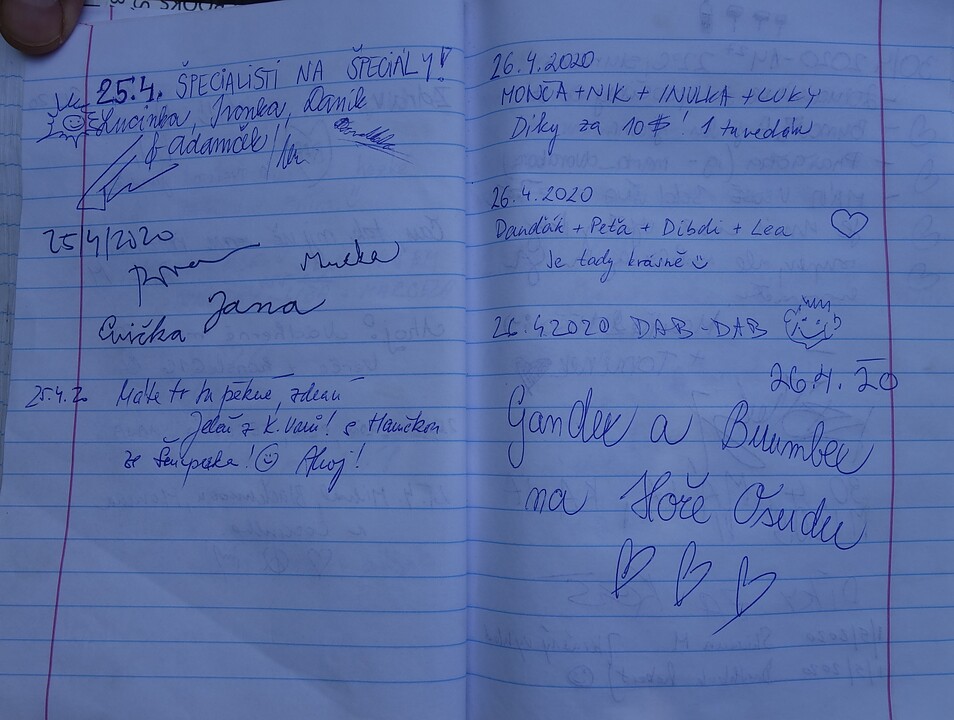 25.4. ŠPECIALISTI NA ŠPECIÁLY!
Lucinka, Ivonka, Daník
& adamček
25/4/2020
Jana
Evička
25.4. Máte to tu pěkné, zdraví
Jeleň z K. Varů! s Haničkou
ze Šenpeka! Ahoj!
26.4.2020
MONČA + NIK + INULKA + LUKY
Díky za 10$! 1 tu nedám
26.4.2020
Danďák + Peťa + Dibdi + Lea
Je tady krásně
26.4.2020 DAB-DAB
26.4.20
Gandee a Bumbee
na Hoře Osudu